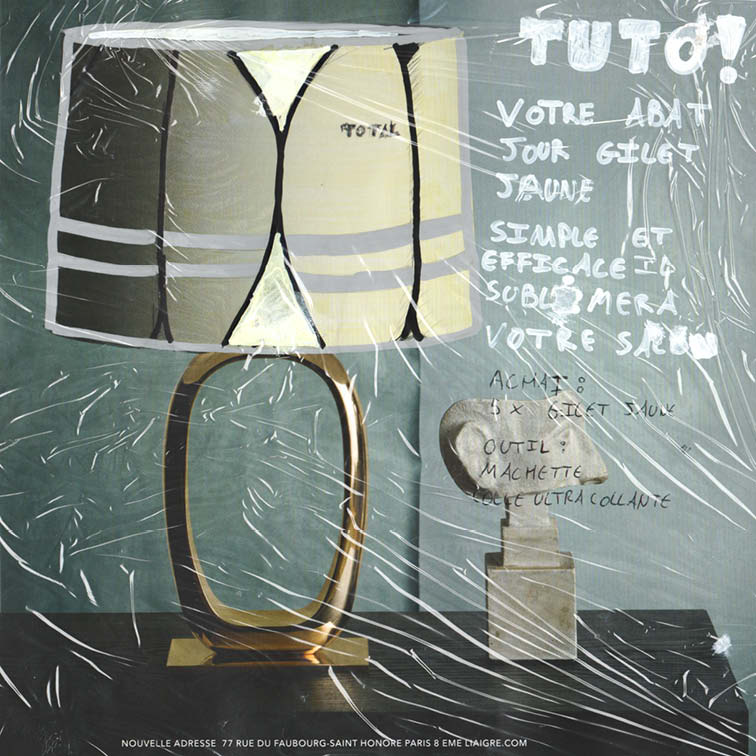 TUTO!
VOTRE ABAT
JOUR GILET
JAUNE
SIMPLE ET
EFFICACE
SUBLIMERA
VOTRE SALON
TOTAL
ACHAT :
GILET JAUNE
OUTIL :
MACHETTE
COLLE ULTRA COLLANTE
NOUVELLE ADRESSE 77 RUE DU FAUBOURG-SAINT HONORE PARIS 8 EME LIAIGRE.COM